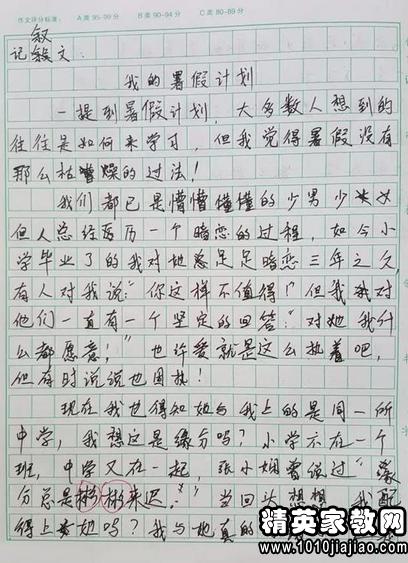 作文评分标准: A类 95-99分 B类 90-94分 C类 80-89分
叙
记叙文:
我的暑假计划
一提到暑假计划,大多数人想到的
往往是如何来学习,但我觉得暑假没有
那么枯燥的过法!
我们都已是懵懵懂懂的少男少女
但人总经历一个暗恋的过程,如今小
学毕业了的我对她总足足暗恋三年之久
有人对我说:“你这样不值得!”但我对
他们一直有一个坚定的回答:“对她我什
么都愿意!”也许爱就是这么执着吧,
但有时说说也困扰!
现在我也得知她与我上的是同一所
中学,我想这是缘分吗?小学不在一个
班,中学又在一起,张小娴曾说过“缘
分总是彬彬来迟。”当回头想想,我配
得上她吗?我与她真的
精英家教网
www.1010jiajiao.com